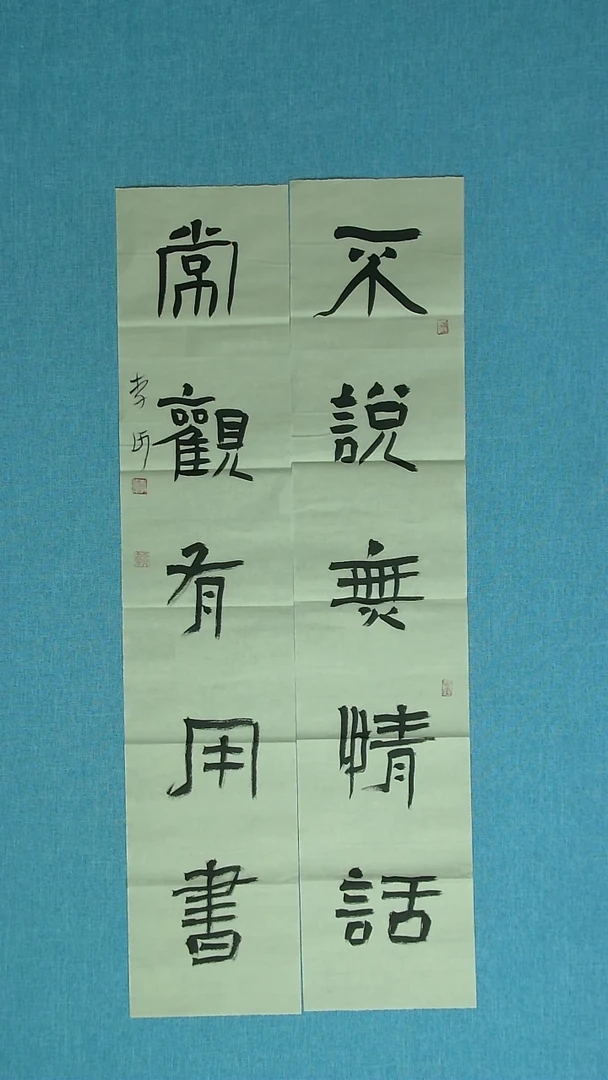 不說無情話
常觀有用書